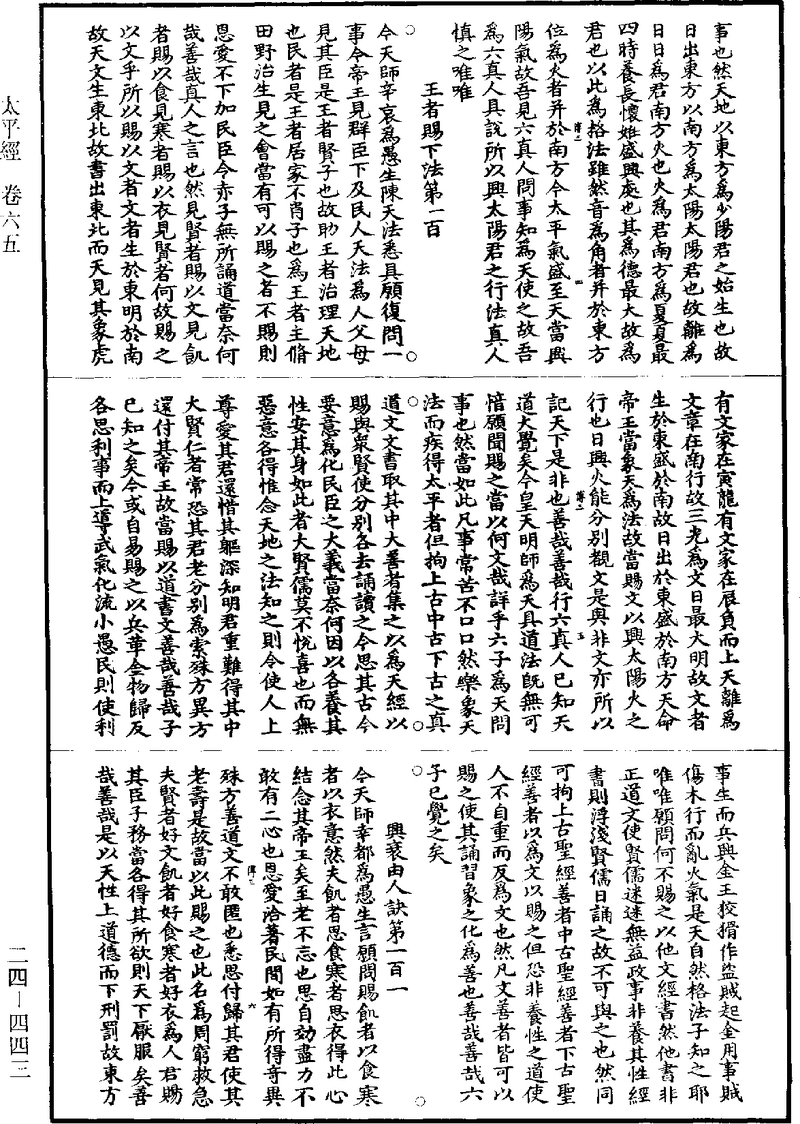 事也然天地以東方為少陽君之始生也故
日出東方以南方為太陽太陽君也故離為
日日為君南方火也火為君南方為夏夏最
四時養長懷妊盛興處也其為德最大故為
君也以此為格法雖然音為角者并於東方
位為火者并於南方今太平氣盛至天當興
陽氣故吾見六真人問事知為天使之故吾
為六真人具說所以興太陽君之行法真人
慎之唯唯
王者賜下法第一百
今天師辛哀為愚生陳天法悉具願復問一
事今帝王見群臣下及民人天法為人父母
見其臣是王者賢子也故助王者治理天地
也民者是王者居家不肖子也為王者主脩
田野治生見之會當有可以賜之者不賜則
恩愛不下加民臣令赤子無所誦道當奈何
哉善哉真人之言也然見賢者賜以文見飢
者賜以食見寒者賜以衣見賢者何故賜之
以文乎所以賜以文者文者生於東明於南
故天文生東北故書出東北而天見其象虎
有文家在寅龍有文家在辰負而上天離為
文章在南行故三光為文日最大明故文者
生於東盛於南故日出於東盛於南方天命
帝王當象天為法故當賜文以興太陽火之
行也日興火能分別觀文是與非文亦所以
記天下是非也善哉善哉行六真人已知天
道大覺矣今皇天明師為天具道法既無可
惜願聞賜之當以何文哉詳乎六子為天問
事也然當如此凡事常苦不口口然樂象天
法而疾得太平者但拘上古中古下古之真
道文文書取其中大善者集之以為天經以
賜與眾賢使分別各去誦讀之今思其古今
要意為化民臣之大義當奈何因以各養其
性安其身如此者大賢儒莫不悅喜也而無
惡意各得惟念天地之法知之則令使人上
尊愛其君還惜其軀深知明君重難得其中
大賢仁者常恐其君老分別為索殊方異方
還付其帝王故當賜以道書文善哉善哉子
已知之矣今或自易賜之以兵革金物歸反
各思利事而上導武氣化流小愚民則使利
事生而兵興金王狡猾作盜賊起金用事賊
傷木行而亂火氣是天自然格法子知之耶
唯唯願問何不賜之以他文經書然他書非
正道文使賢儒迷迷無益政事非養其性經
書則浮淺賢儒日誦之故不可與之也然同
可拘上古聖經善者中古聖經善者下古聖
經善者以為文以賜之但恐非養性之道使
人不自重而反為文也然凡文善者皆可以
賜之使其誦習象之化為善也善哉善哉六
子已覺之矣
興衰由人訣第一百一
今天師幸都為愚生言願聞賜飢者以食寒
者以衣意然夫飢者思食寒者思衣得此心
結念其帝王矣至老不忘也思自効盡力不
敢有二心也恩愛洽著民間如有所得奇異
殊方善道文不敢匿也悉思付歸其君使其
老壽是故當以此賜之也此名為周窮救急
夫賢者好文飢者好食寒者好衣為人君賜
其臣子務當各得其所欲則天下厭服矣善
哉善哉是以天性上道德而下刑罰故東方
太平經 卷六五
二四－四四二